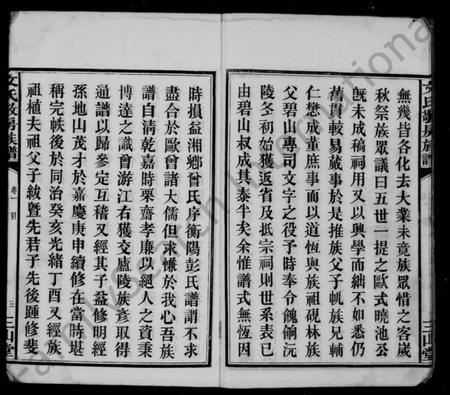 無幾皆各化去大業未竟族眾惜之客歲
秋祭族眾議曰五世一提之歐式曉池公
既未成稿祠用又以興學而絀不如悉仍
舊貫較易蕆事於是推族父子帆族兄輔
仁懋成董庶事而以道恆與族祖硯林族
父碧山專司文字之役予時奉令餽餉沅
陵冬初始獲返省及抵宗祠則世系表已
由碧山叔成其泰半矣余惟譜式無恆因
時損益湘鄉曾氏序衡陽彭氏譜謂不求
盡合於歐曾諸大儒但求慊於我心吾族
譜自清乾嘉時栗齋孝廉以絕人之資秉
博達之識曾游江右獲交廬陵族彥取得
通譜以歸參定互稽又經其子益修明經
孫地山茂才於嘉慶庚申續修在當時堪
稱完帙後於同治癸亥光緒丁酉又經族
祖植夫祖父子紱暨先君子先後踵修斐
文氏敦房族譜
卷一 引
三
三山堂
三山堂